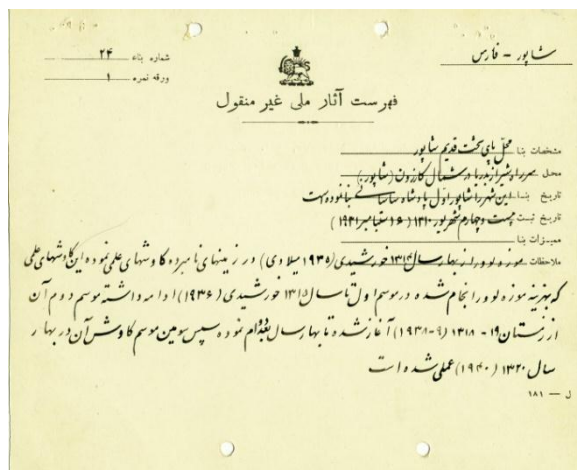 شاپور - فارس
شماره بناه ۲۴
ورقه نمره ۱
فهرست آثار ملی غیر منقول
مشخصات بنا محل پای تخت قدیم شاپور
محل سر راه شیراز ببندر بنادر شمال کازرون (شاپور)
تاریخ بنا این شهر را شاپور اول پادشاه ساسانی بنا نموده است
تاریخ ثبت بیست و چهارم شهریور ۱۳۱۰ (۱۶ سپتامبر ۱۹۳۱)
ممیزات بنا
ملاحظات موزه لوور از بهار سال ۱۳۱۴ خورشیدی (۱۹۳۵ میلادی) در زمینهای نامبرده کاوشهای علمی نموده این کاوشهای علمی
که بهزینه موزه لوور انجام شده در موسم اول تا سال ۱۳۱۵ خورشیدی (۱۹۳۶) ادامه داشته موسم دوم آن
از زمستان ۱۹-۱۳۱۸ (۹-۱۹۳۸) آغاز شده تا بهار سال بعد دوام نموده سپس سومین موسم کاوش آن در بهار
سال ۱۳۲۰ (۱۹۴۰) عملی شده است
ل — ۱۸۱